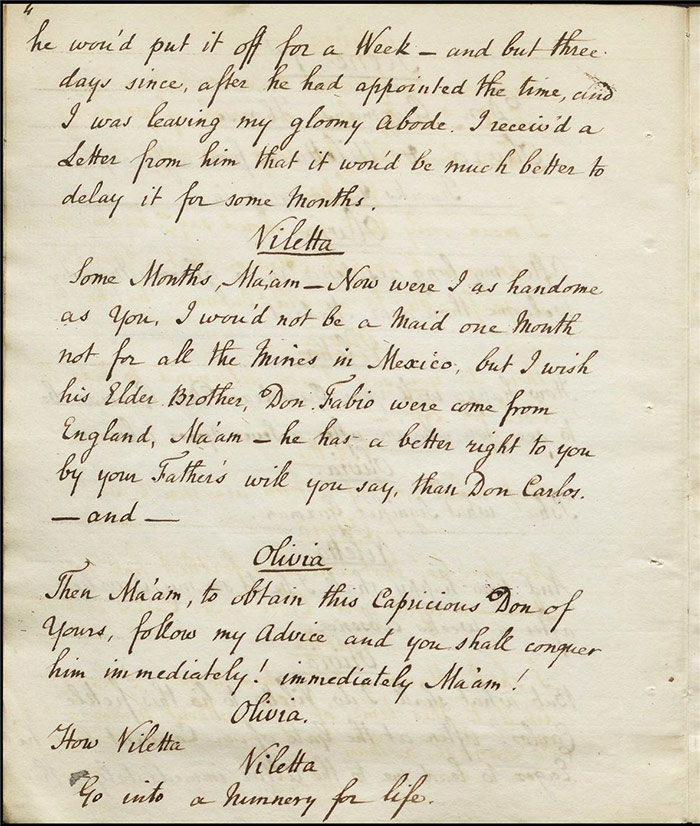 4
he wou'd put it off for a Week — and but three
days since, after he had appointed the time, and
I was leaving my gloomy Abode. I receiv'd a
Letter from him that it wou'd be much better to
delay it for some Months.
Viletta
Some Months, Ma'am — Now were I as handome
as You, I wou'd not be a Maid one Month
not for all the Mines in Mexico, but I wish
his Elder Brother, Don Fabio were come from
England, Ma'am — he has a better right to you
by your Father's will you say, than Don Carlos.
— and —
Olivia
Then Ma'am, to obtain this Capricious Don of
Yours, follow my Advice and you shall conquer
him immediately! immediately Ma'am!
Olivia.
How Viletta
Viletta
Go into a Nunnery for life.